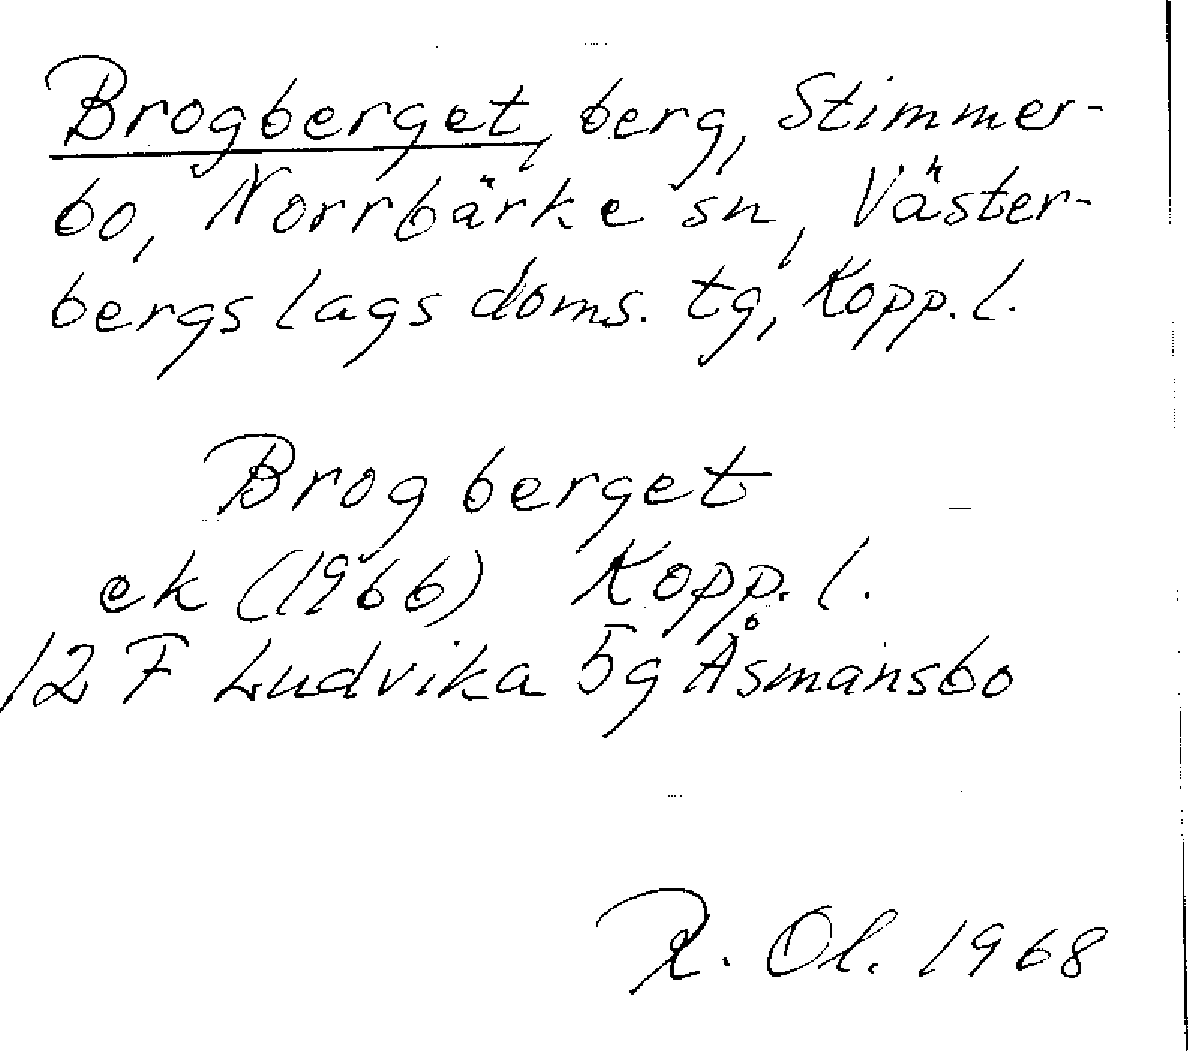 Brogberget, berg, Stimmer-
bo, Norrbärke sn, Väster-
bergslags doms. tg, Kopp. l.
Brogberget
ek (1966) Kopp. l.
12 F Ludvika 5g Åsmansbo
R. Ol. 1968